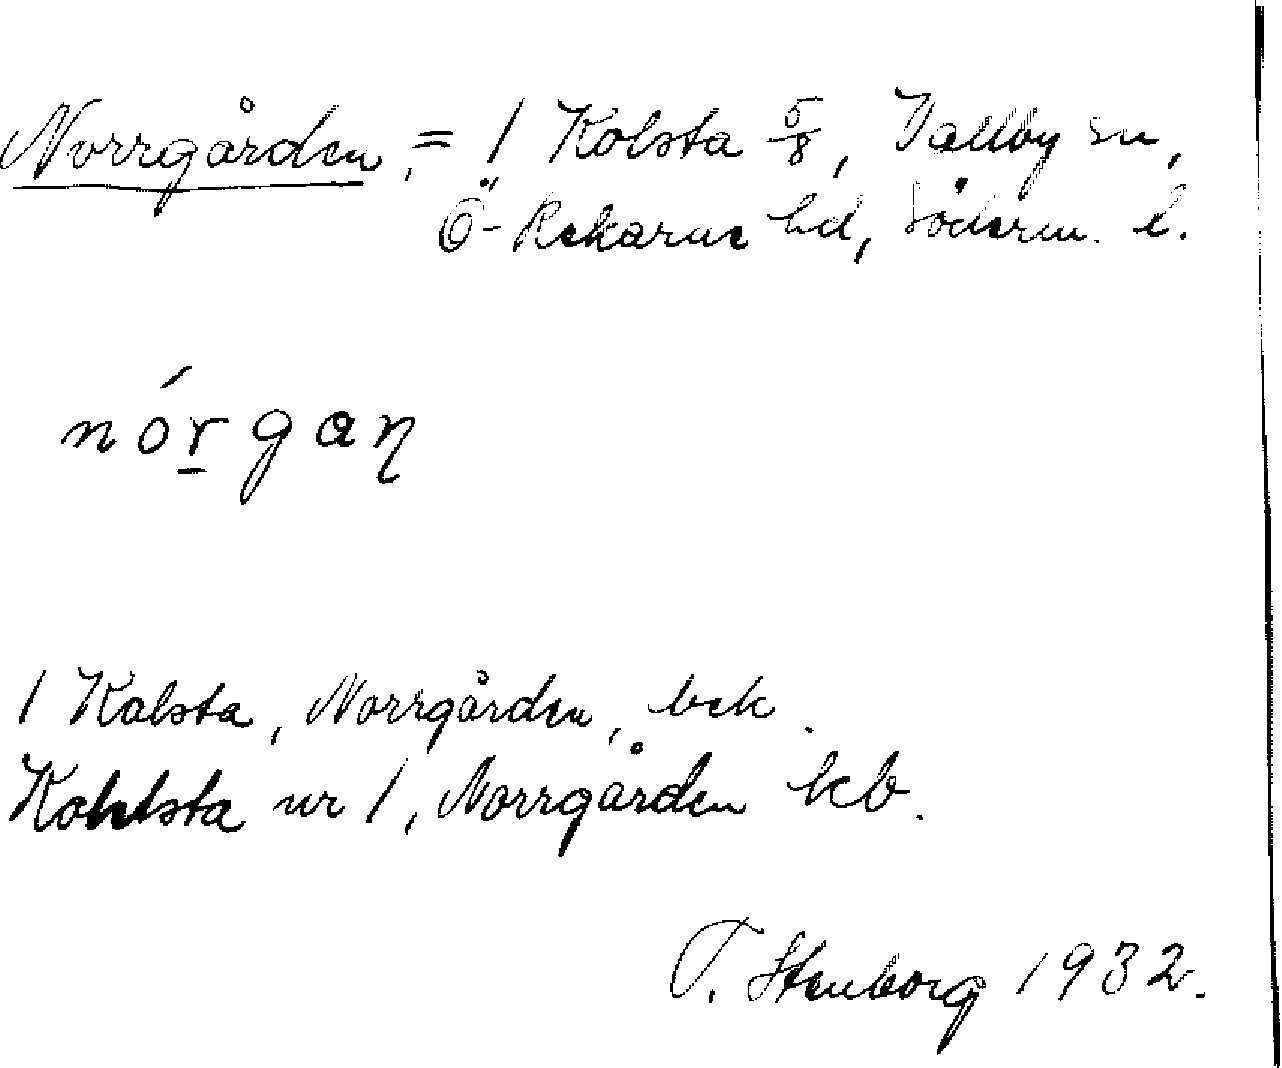 Norrgården, = 1 Kolsta 5/8, Vallby sn,
Ö-Rekarne hd, Söderm. l.
nórgaɳ
1 Kolsta, Norrgården, bek.
Kohlsta nr 1, Norrgården kb.
T. Stenborg 1932.